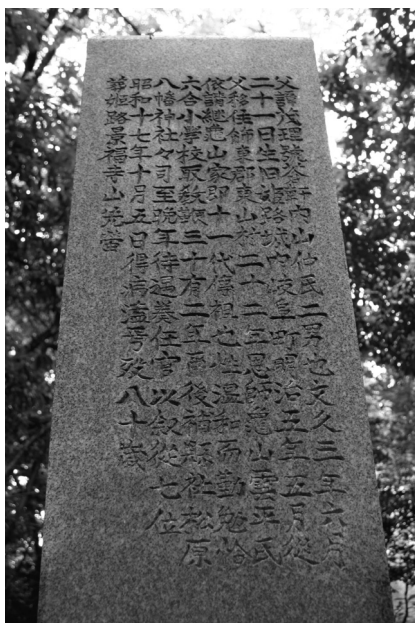 父諱茂理號谷軒内山伯民二男也文久三年六月
二十一日生旧姫路城内坂皇町明治五年五月従
父移住飾東郡東山村二十二五恩師亀山雲平氏
依請継亀山家即十一代儔相也性温和而勤勉恰
六合小學校取教鞭三十有二年爾後補縣社松原
八幡神社々司至晩年待遇奏任官以叙従七位
昭和十七年十月五日得病溘焉歿八十歳
葬姫路景福寺山先塋